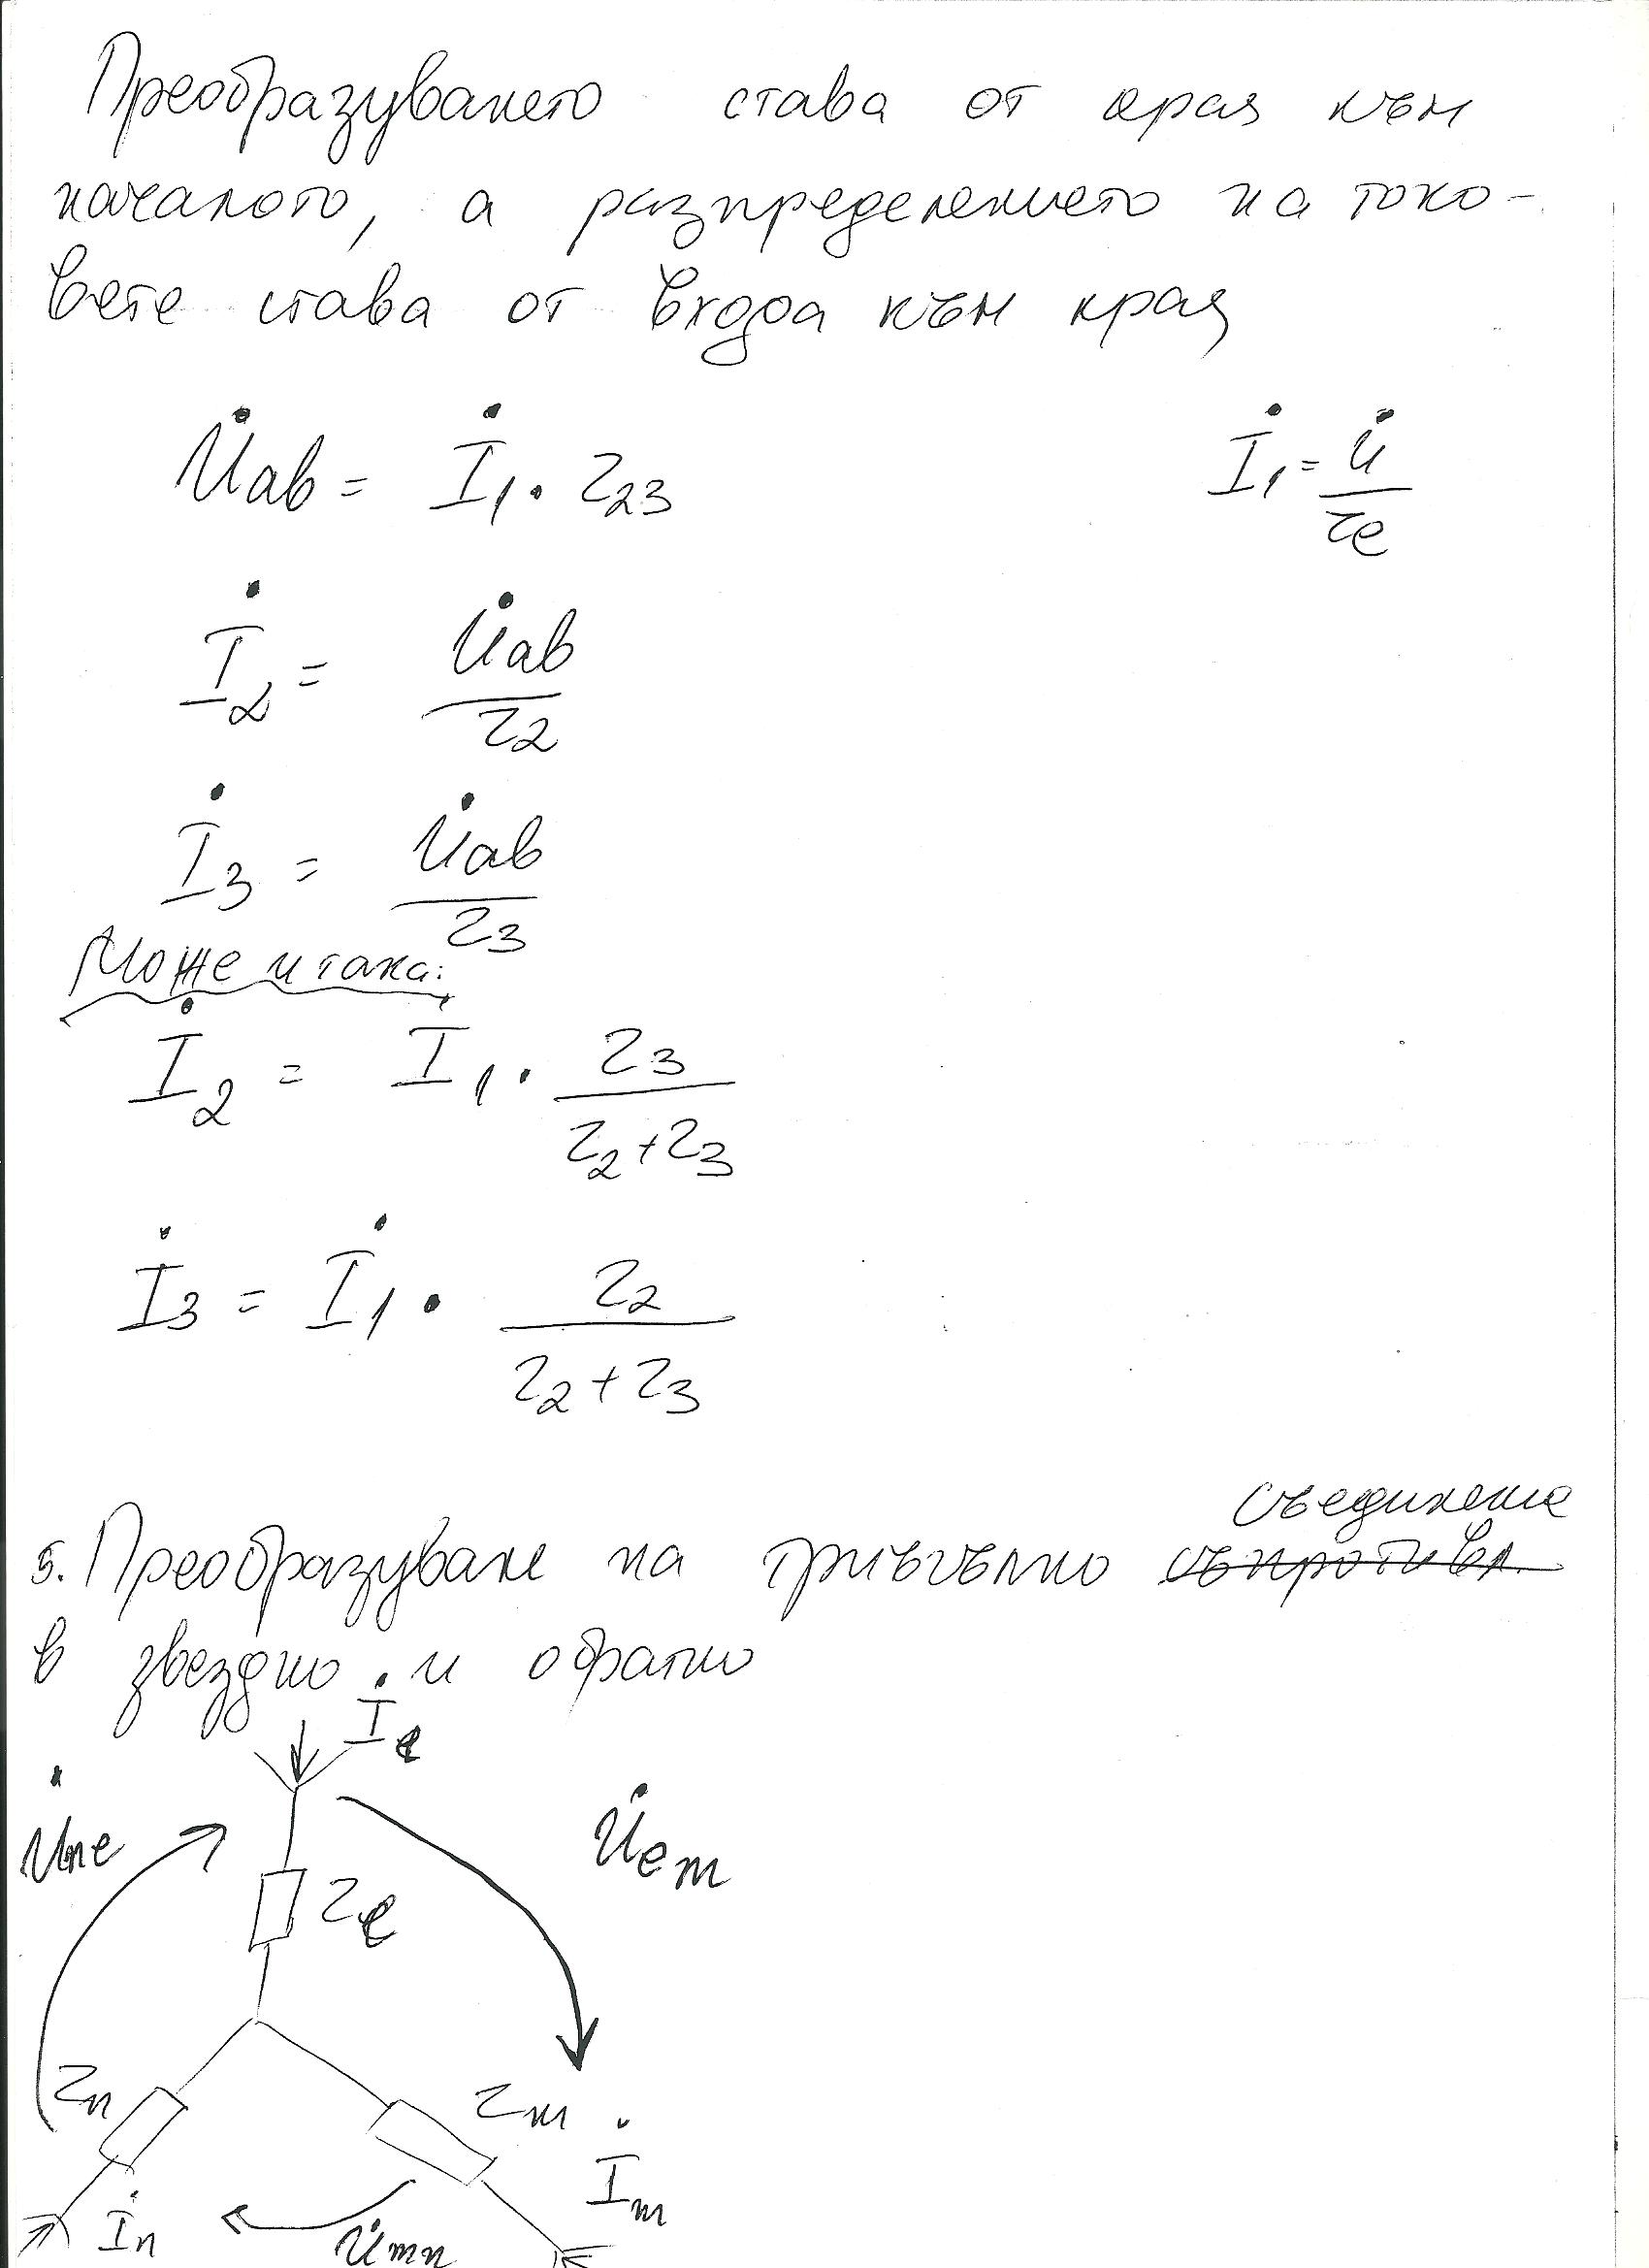 Преобразуването става от края към
началото, а разпределението на токо-
вете става от входа към края
U̇ab = İ1 . Z23
İ1 = U̇ / Ze
İ2 = U̇ab / Z2
İ3 = U̇ab / Z3
Може и така:
İ2 = I1 . Z3 / Z2+Z3
İ3 = İ1 . Z2 / Z2+Z3
съединение
5. Преобразуване на триъгълно съпротивл.
в звездно и обратно
İe
U̇ne
U̇em
Ze
Zn
Zm
İm
İn
U̇mn